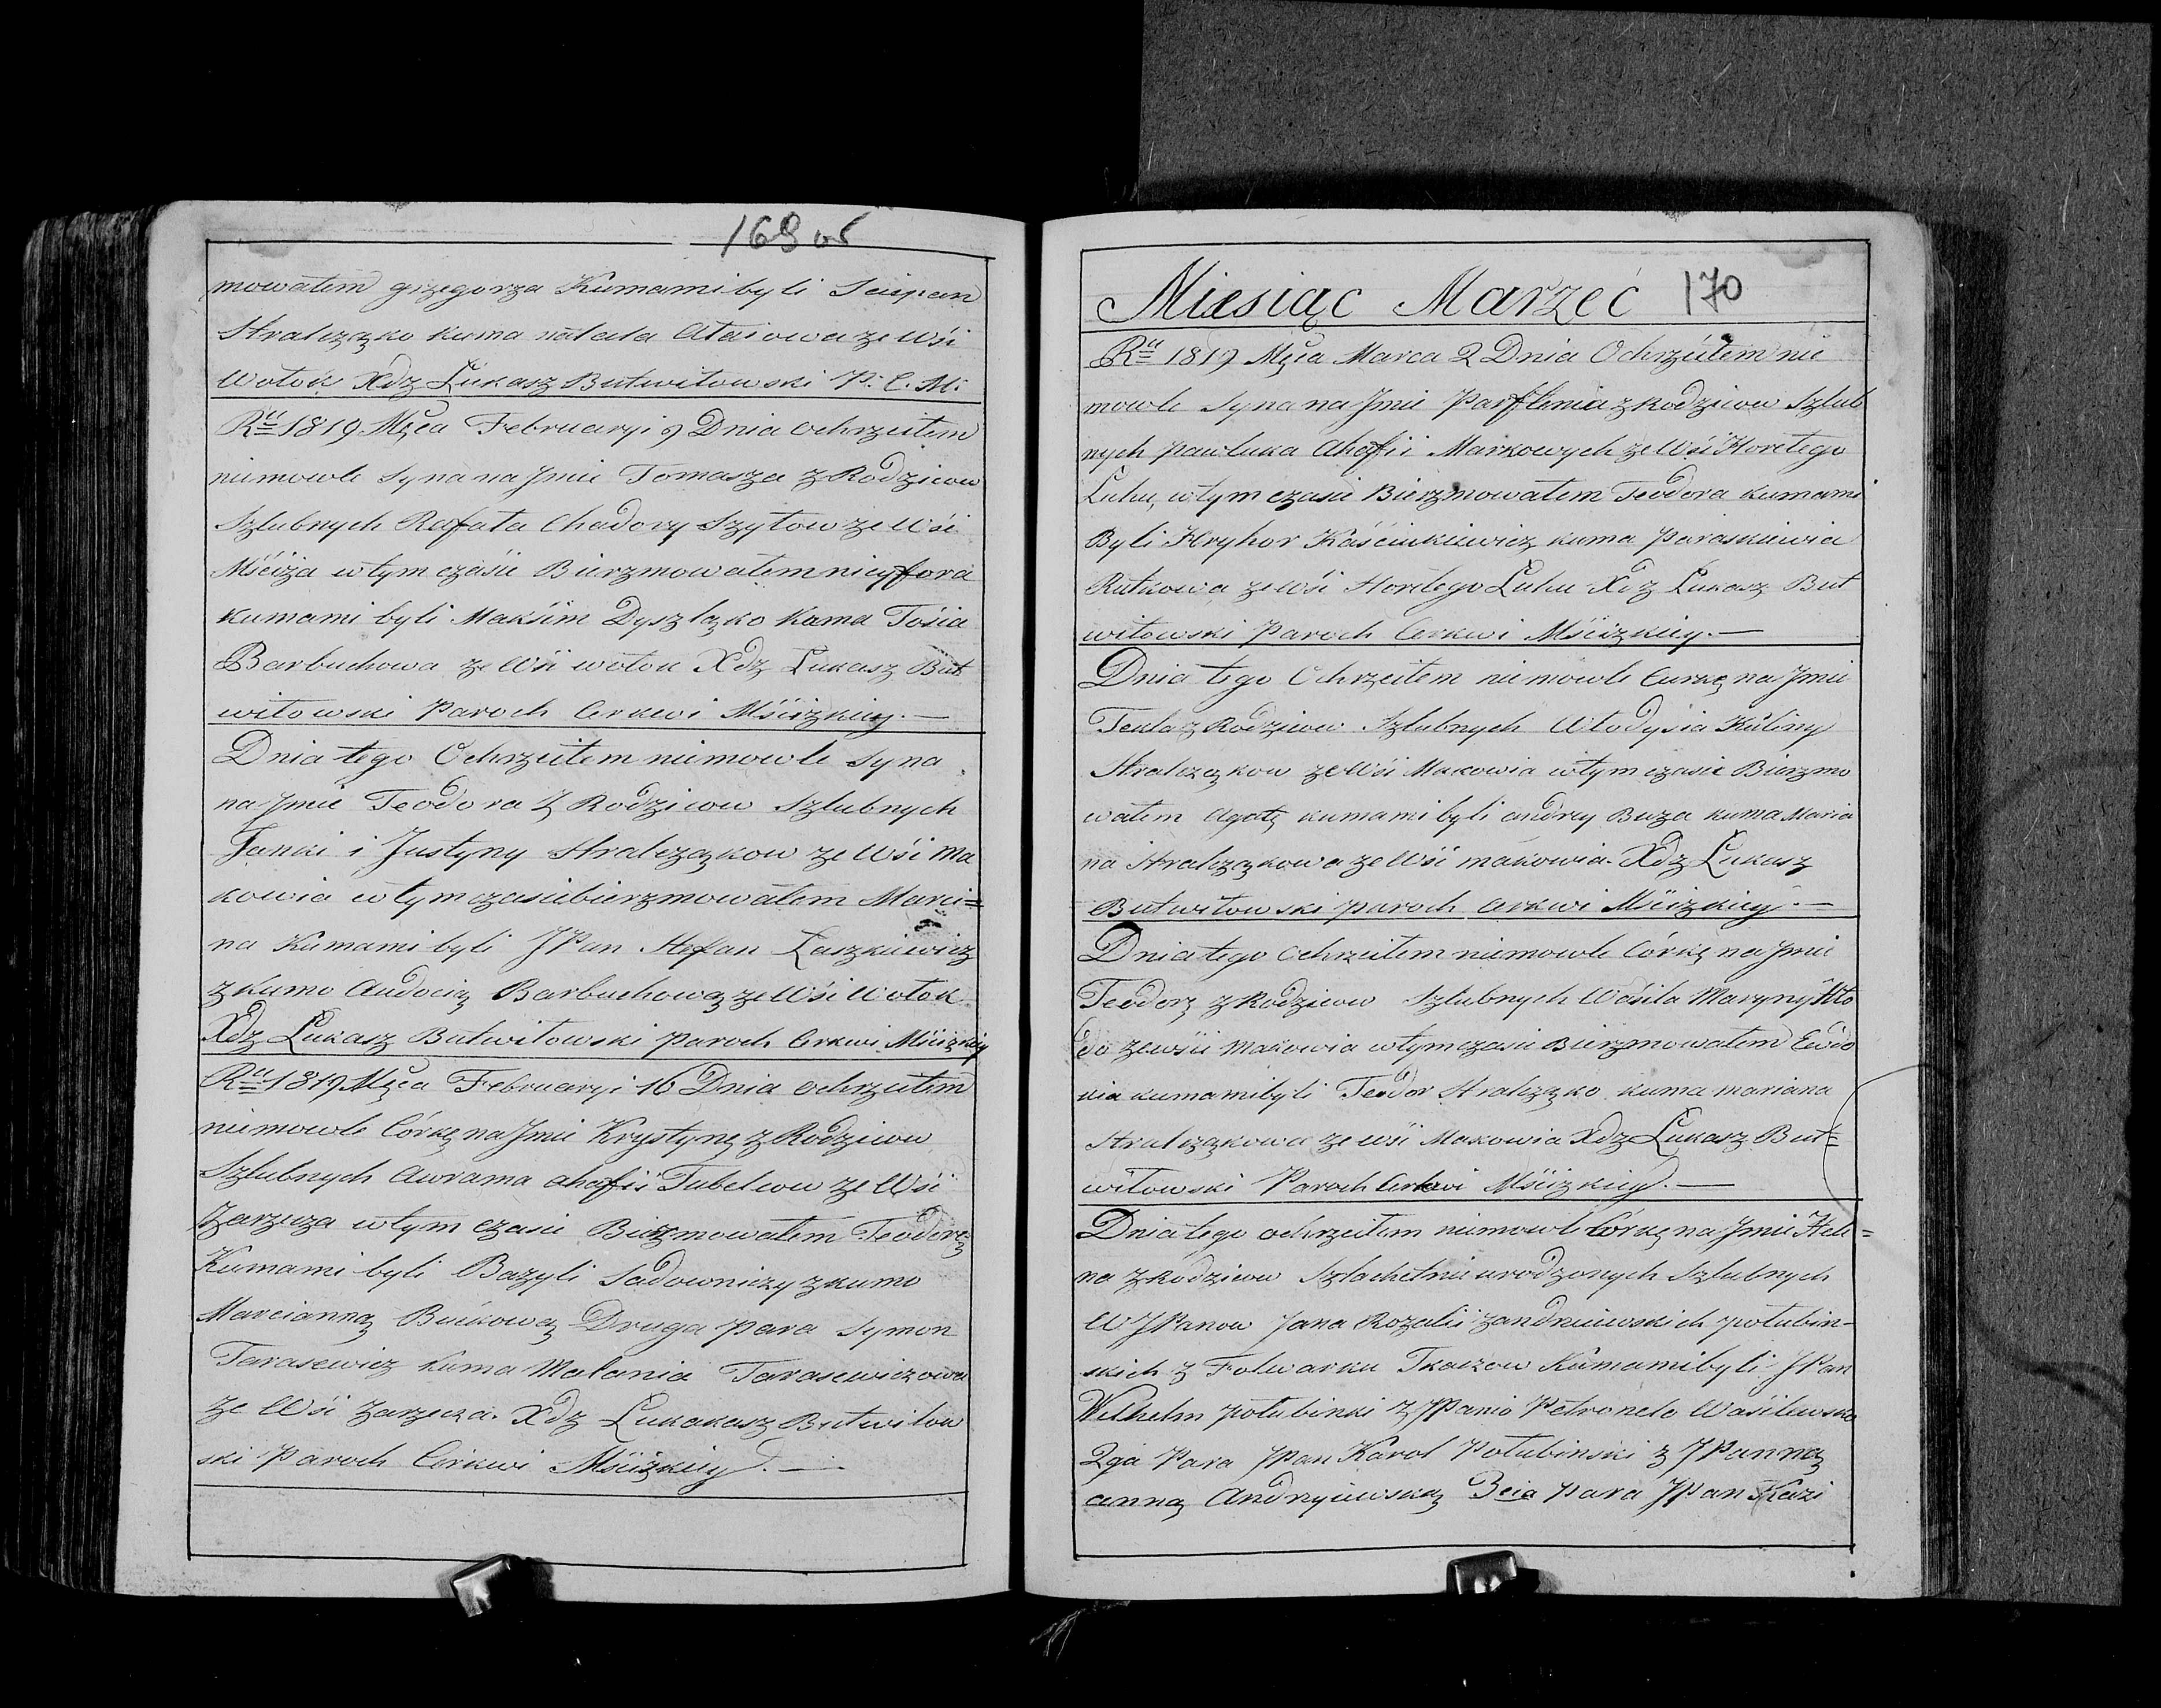 169 об
mowałem grzegorza Kumami byli Sciepan
Hralczązko kuma natala Ataiowa ze Wśi
Wołok Xdz Łukasz Butwiłowski P. C. M.
Ru 1819 Mςca Februaryi 9 Dnia ochrzciłem
niemowle Syna na Jmie Tomasza z Rodzicow
Szlubnych Rafała Chadory Szyłow ze Wśi
Mśćiża w tym czaśie Bierzmowałem nicyfora
kumami byli Makśim Dyszlązko Kuma Tośia
Barbuchowa ze Wśi wołok Xdz Łukasz But
wiłowski Paroch Cerkwi Mśćiżkiey.—
Dnia tego Ochrzciłem niemowle Syna
na Jmie Teodora z Rodzicow Szlubnych
Janki i Justyny Hralczązkow ze Wśi Ma
kowia w tym czasie bierzmowałem Marci=
na Kumami byli JPan Stefan Łaszkiewicz
z kumo Audocią Barbuchową ze Wśi Wołok
Xdz Łukasz Butwiłowski Paroch Cerkwi Mśćiżkiey
Ru 1819 Mςca Februaryi 16 Dnia ochrzciłem
niemowle Córkę na Jmie Krystynę z Rodzicow
Szlubnych Awrama ahafii Tubelow ze Wśi
Zarzecza w tym czasie Bierzmowałem Teodorę
Kumami byli Bazyli Sadowniczy z kumo
Marcianną Bućkową Druga para Symon
Tarasewicz Kuma Malania Tarasewiczowa
ze Wśi Zarzecza. Xdz Łukakasz Butwiłow
ski Paroch Cerkwi Mśćiżkiey.—
Miesiąc Marzeć 170
Ru 1819 Mςca Marca 2 Dnia Ochrzciłem nie
mowle Syna na Jmie Parflenia z Rodzicow Szlub
nych Pawluka Ahafii Markowych ze Wśi Horełego
Luhu, w tym czasie Bierzmowałem Teodora kumami
Byli Hryhor Kaśćiukiewicz kuma Paraskiewia
Rutkowa ze wśi Horełego Luhu Xdz Łukasz But
wiłowski Paroch Cerkwi Mśćiżkiey.—
Dnia tego Ochrzciłem niemowle Curkę na Jmie
Tekla z Rodzicow Szlubnych Włodyśia Kuliny
Hralczązkow ze Wśi Makowia w tym czasie Bierzmo
wałem Agatę kumami byli andrey Buza kuma Maria
na Hralczązkowa ze Wśi makowia. Xdz Łukasz
Butwiłowski paroch Cerkwi Mśćiżkiey.—
Dnia tego Ochrzciłem niemowle Córkę na Jmie
Teodorę z Rodzicow Szlubnych Waśila Maryny Kło
do ze wśi Makowia w tym czasie Bierzmowałem Ewdo
kia kumami byli Teodor Hralczązko kuma mariana
Hralczązkowa ze wśi Makowia Xdz Łukasz But=
wiłowski Paroch Cerkwi Mśćiżkiey.—
Dnia tego ochrzciłem niemowle Córkę na Jmie Hele=
na z Rodzicow Szlachetnie urodzonych Szlubnych
WJPanow Jana Rozalii z andrieiewskich połubin-
skich z Folwarku Tkaczow Kumami byli JPan
Wilhelm połubinki z JPanio Petronelo Waśilewsko
2ga Para JPan Karol Połubinski z JPanną
anną Andryiewską 3cia para JPan Kazi